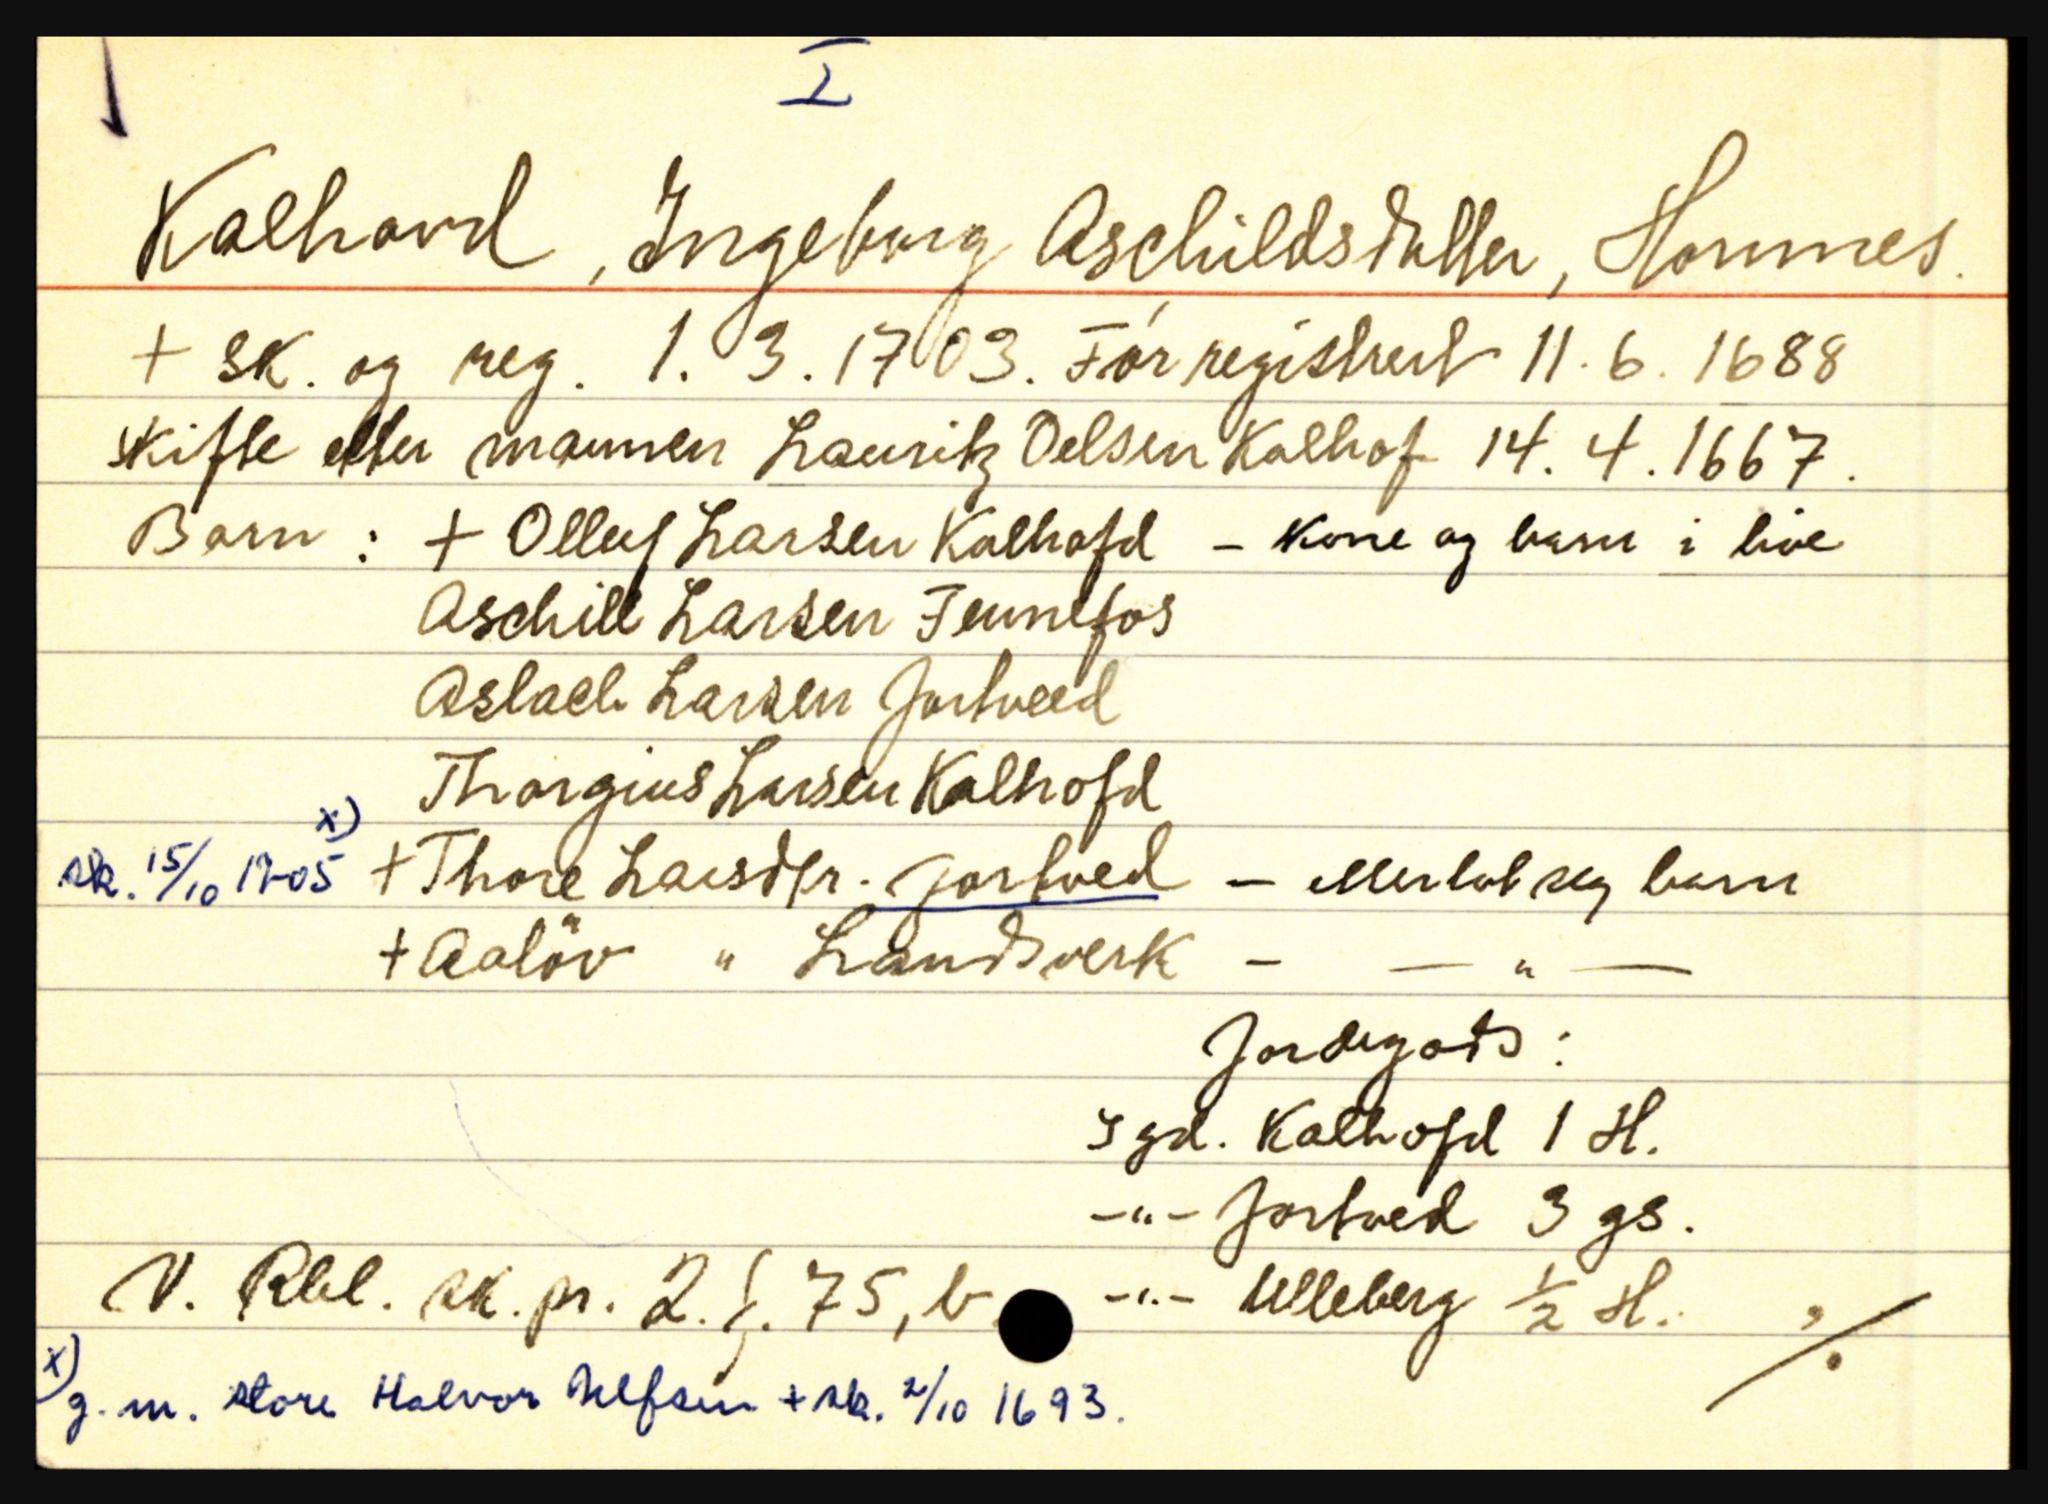 I
Kalhovd, Ingeborg Aschildsdatter, Hornnes.
+ sk. og reg. 1. 3. 1703. Før registrert 11. 6. 1688
skifte etter mannen Lauritz Oelsen Kalhof 14. 4. 1667.
Born : + Olluf Larsen Kalhofd - kone og barn i live
Aschill Larsen Fennefos
Aslach Larsen Jortveed
Thorgius Larsen Kalhofd
x)
sk. 15/10 1705 + Thore Larsdtr. Jortved - etterlot seg barn
+ Aaløv " Landsverk - — " —
Jordegods :
I gd. Kalhofd 1 H.
-"- Jortved 3 gs.
V. Rbl. sk. pr. 2. f. 75, b. -"- Ulleberg 1/2 H. ./.
x) g. m. store Halvor Ulfsen + sk. 2/10 1693.